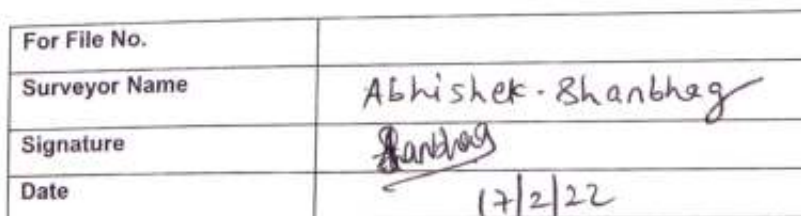 For File No.
Surveyor Name Abhishek. Shanbhag
Signature Shanbhag
Date 17/2/22